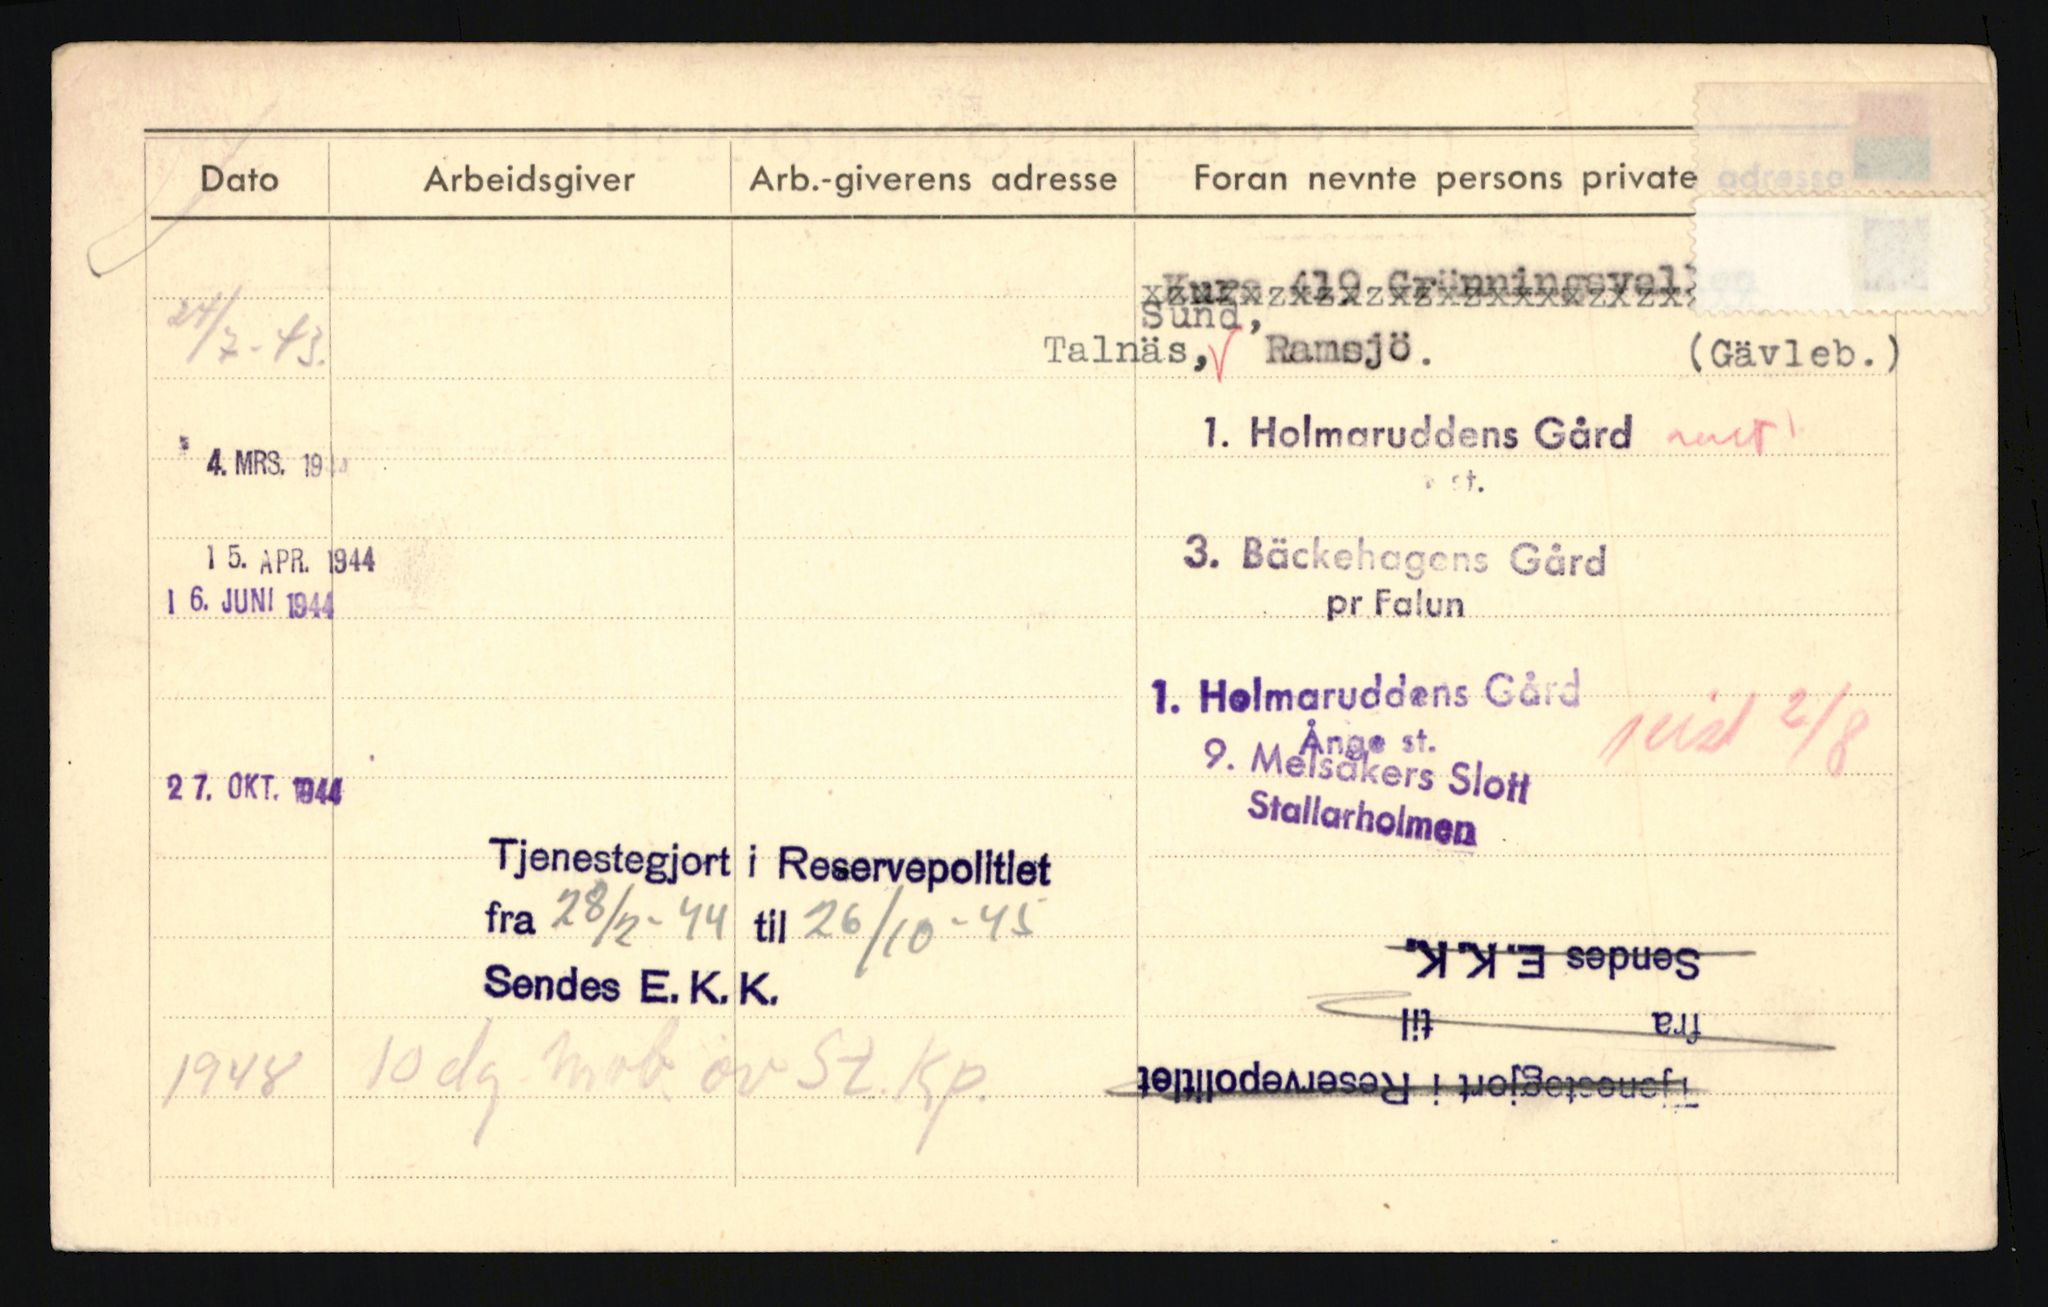 Dato Arbeidsgiver Arb.-giverens adresse Foran nevnte persons private adresse
Kurs 419 Grünningsvallen
Sund,
24/7-43. Talnäs, Ramsjö. (Gävleb.)
1. Holmaruddens Gård
4. MRS. 19
st.
15. APR. 1944 3. Bäckehagens Gård
16. JUNI 1944 pr Falun
1. Holmaruddens Gård
Ånge st. 2/8
9. Melsåkers Slott
27. OKT. 1944 Stallarholmen
Tjenestegjort i Reservepolitiet
fra 28/2-44 til 26/10-45
Sendes E. K. K.
1948 10 dg. mob. öv St. Kp.
Tjenestegjort i Reservepolitiet
fra til
Sendes E. K. K.